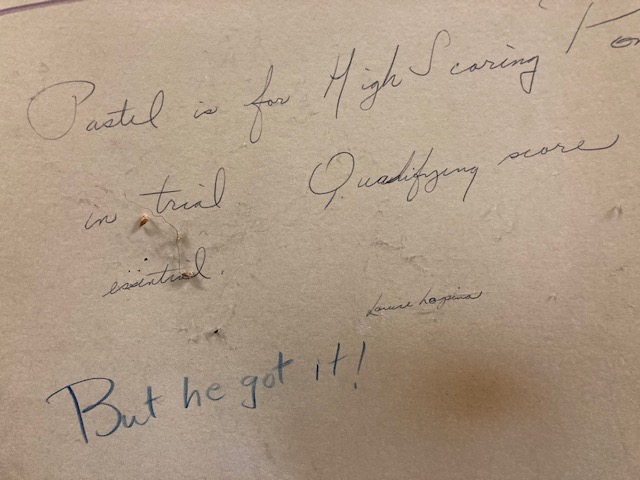 Pastel is for High Scoring
in trial Qualifying score
essential.
Louise
But he got it!